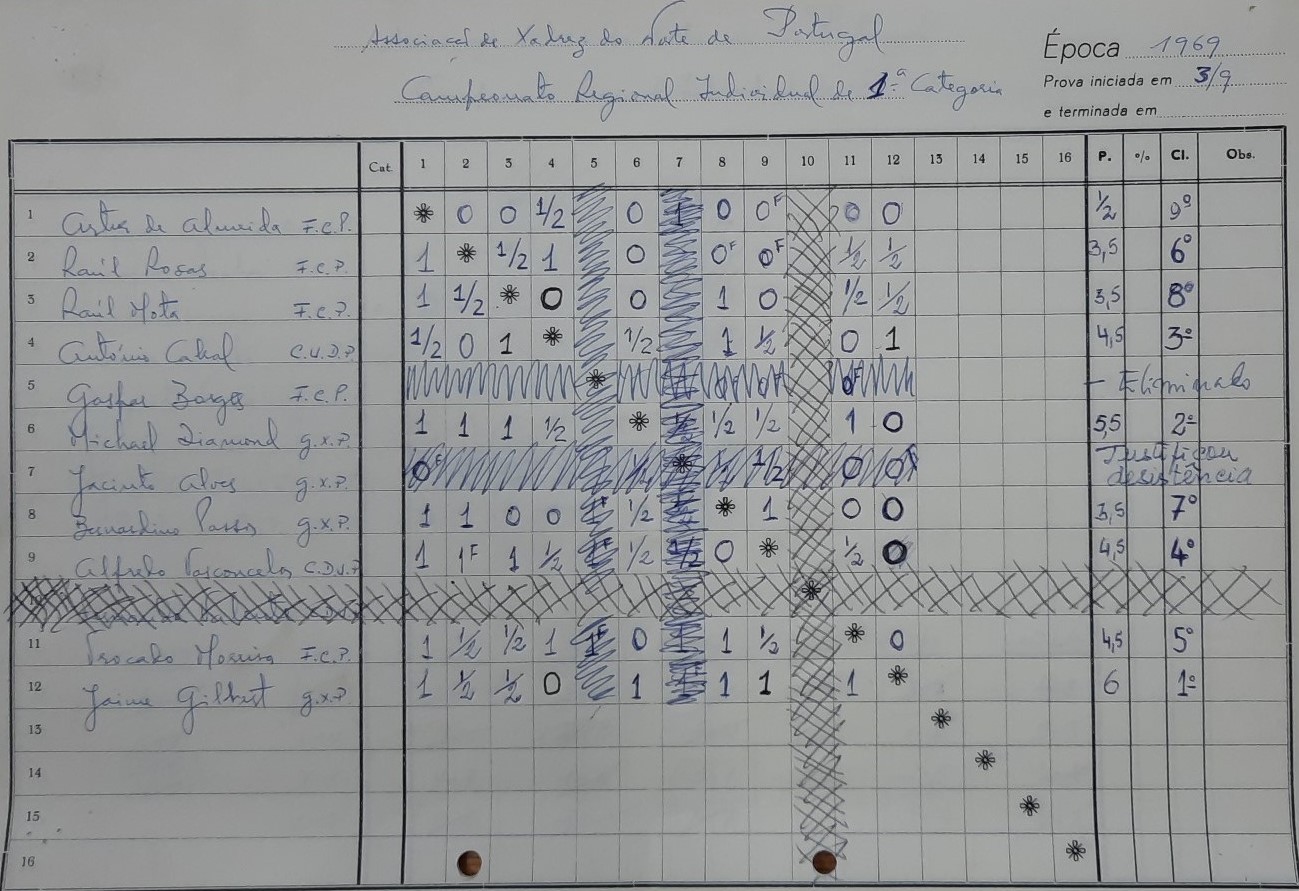 Associação de Xadrez do Norte de Portugal
Campeonato Regional Individual de 1ª Categoria
Época 1969
Prova iniciada em 3/9
e terminada em
Cat. 1 2 3 4 5 6 7 8 9 10 11 12 13 14 15 16 P. % Cl. Obs.
1 Artur de Almeida F.C.P. * 0 0 1/2 0 1 0 0F 0 0 1/2 9º
2 Raúl Rosas F.C.P. 1 * 1/2 1 0 0F 0F 1/2 1/2 3,5 6º
3 Raúl Mota F.C.P. 1 1/2 * 0 0 1 0 1/2 1/2 3,5 8º
4 António Cabral C.D.U.P. 1/2 0 1 * 1/2 1 1/2 0 1 4,5 3º
5 Gaspar Borges F.C.P. * 0F - Eliminado
6 Michael Diamond g.x.P. 1 1 1 1/2 * 1/2 1/2 1 0 5,5 2º
7 Jacinto Alves g.x.P. 0F * 1/2 0 0F Justificou desistência
8 Bernardino Passos g.x.P. 1 1 0 0 1/2 * 1 0 0 3,5 7º
9 Alfredo Vasconcelos C.D.U.P. 1 1F 1 1/2 1F 1/2 1/2 0 * 1/2 0 4,5 4º
*
11 Trocado Moreira F.C.P. 1 1/2 1/2 1 1F 0 1 1 1/2 * 0 4,5 5º
12 Jaime Gilbert g.x.P. 1 1/2 1/2 0 1 1 1 1 * 6 1º
13 *
14 *
15 *
16 *